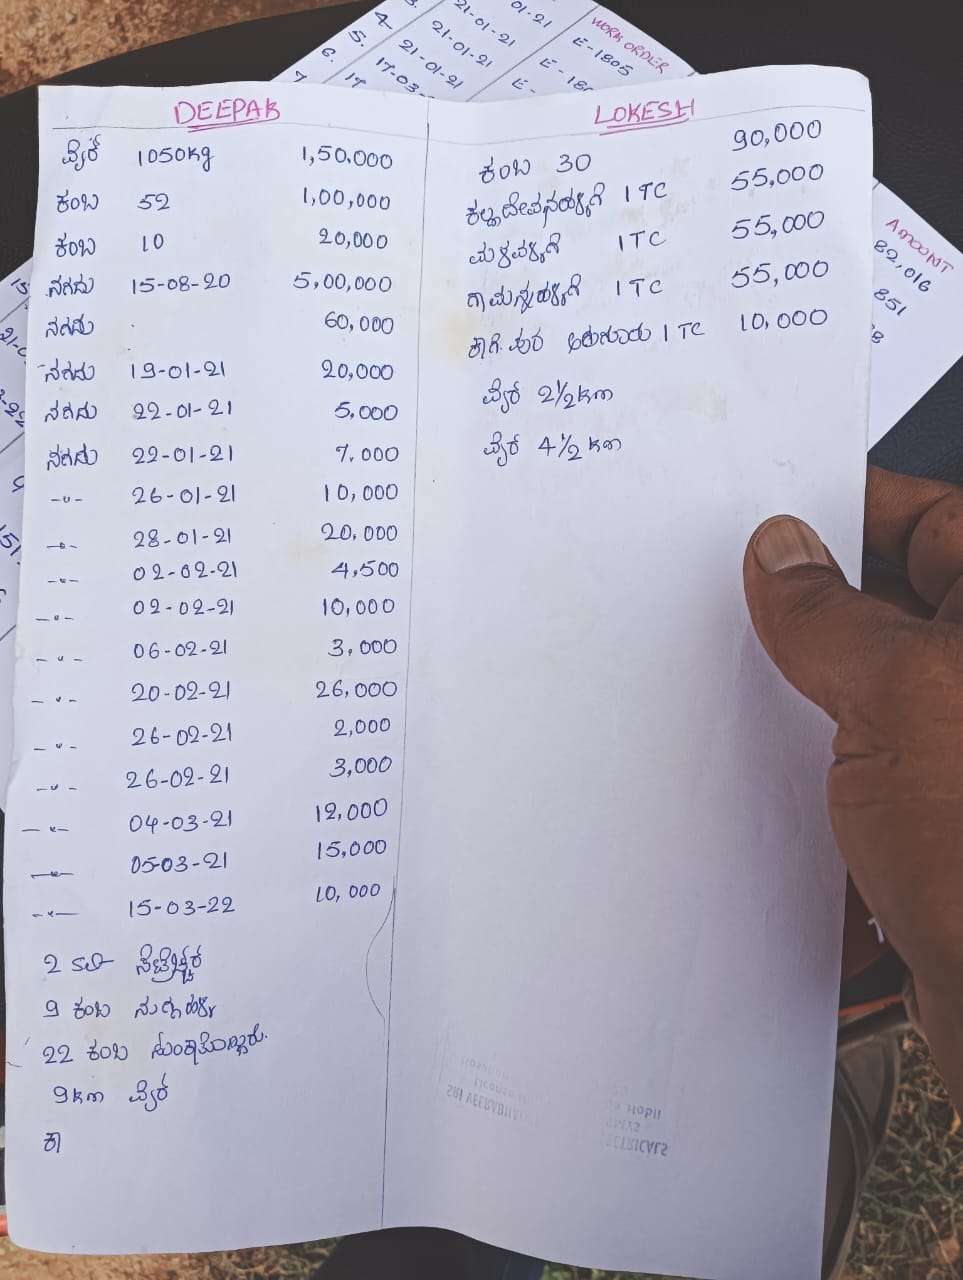 DEEPAK
ವೈರ್ 1050Kg 1,50,000
ಕಂಬ 52 1,00,000
ಕಂಬ 10 20,000
ನಗದು 15-08-20 5,00,000
ನಗದು 60,000
ನಗದು 19-01-21 20,000
ನಗದು 22-01-21 5,000
ನಗದು 22-01-21 7,000
-"- 26-01-21 10,000
-"- 28-01-21 20,000
-"- 02-02-21 4,500
-"- 02-02-21 10,000
-"- 06-02-21 3,000
-"- 20-02-21 26,000
-"- 26-02-21 2,000
-"- 26-02-21 3,000
-"- 04-03-21 12,000
-"- 05-03-21 15,000
-"- 15-03-22 10,000
2
9 ಕಂಬ
22 ಕಂಬ
9km ವೈರ್
ಕಾ
LOKESH
ಕಂಬ 30 90,000
1 TC 55,000
1 TC 55,000
1 TC 55,000
1 TC 10,000
ವೈರ್ 2½km
ವೈರ್ 4½km
WORK ORDER
E-1805
21-01-21
21-01-21
21-01-21
17-03-
AMOUNT
82,016
851